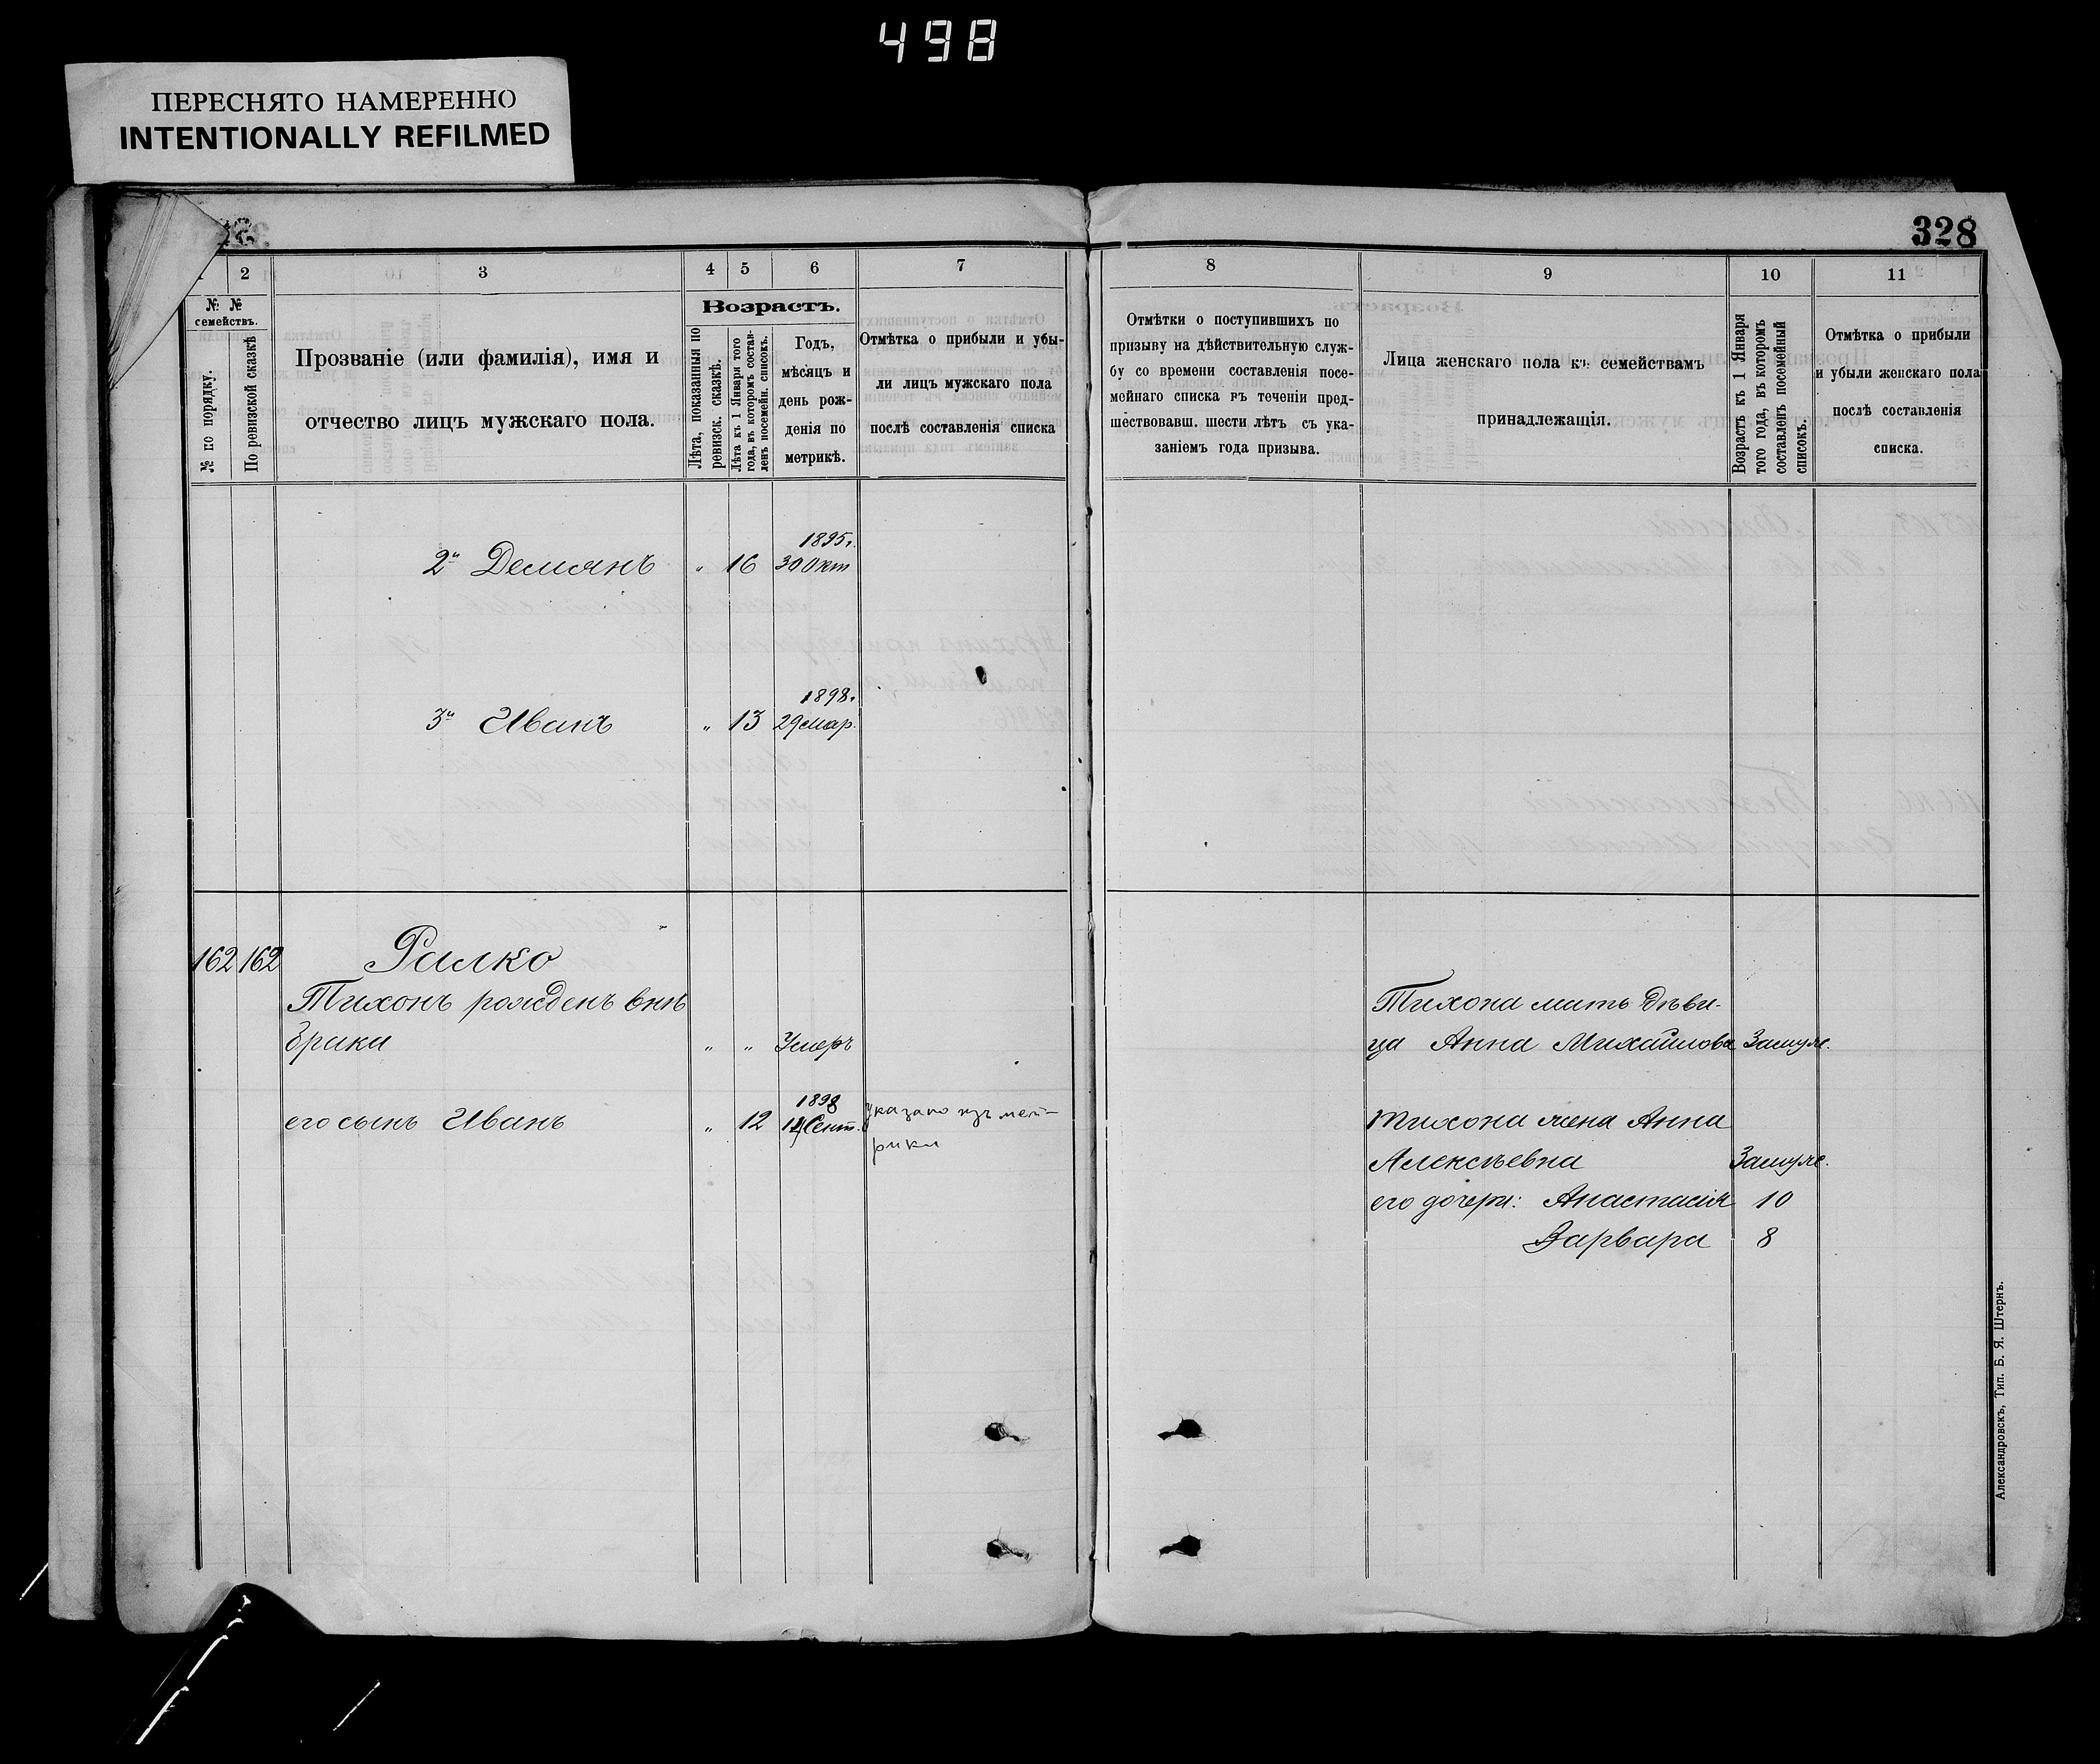 498
ПЕРЕСНЯТО НАМЕРЕННО
INTENTIONALLY REFILMED
328
2
3
4
5
6
7
№ № семействъ.
№ по порядку.
По ревизской сказкѣ
Прозваніе (или фамилія), имя и
отчество лицъ мужскаго пола.
Возрастъ.
Лѣта, показанныя по
ревизск. сказкѣ.
Лѣта къ 1 Января того
года, въ которомъ состав-
ленъ посемейн. списокъ.
Годъ,
мѣсяцъ и
день рож-
денія по
метрикѣ.
Отмѣтка о прибыли и убы-
ли лицъ мужскаго пола
послѣ составленія списка
8
9
10
11
Отмѣтки о поступившихъ по
призыву на дѣйствительную служ-
бу со времени составленія посе-
мейнаго списка въ теченіи пред-
шествовавш. шести лѣтъ съ ука-
заніемъ года призыва.
Лица женскаго пола къ семействамъ
принадлежащія.
Возрастъ къ 1 Января
того года, въ которомъ
составленъ посемейный
списокъ.
Отмѣтка о прибыли
и убыли женскаго пола
послѣ составленія
списка.
1895г.
2й Демянъ " 16 30 Окт
1898г.
3й Иванъ " 13 29 Мар.
162 162 Ралко
Тихонъ рожденъ внѣ
брака " " Умеръ
1898
его сынъ Иванъ " 12 Сент. указано изъ мет-
рики
Тихона мать дѣви-
ца Анна Михайлова Замуж.
Тихона жена Анна
Алексѣевна Замуж.
его дочери: Анастасія 10
Варвара 8
Александровскъ, Тип. Б. Я. Штернъ.